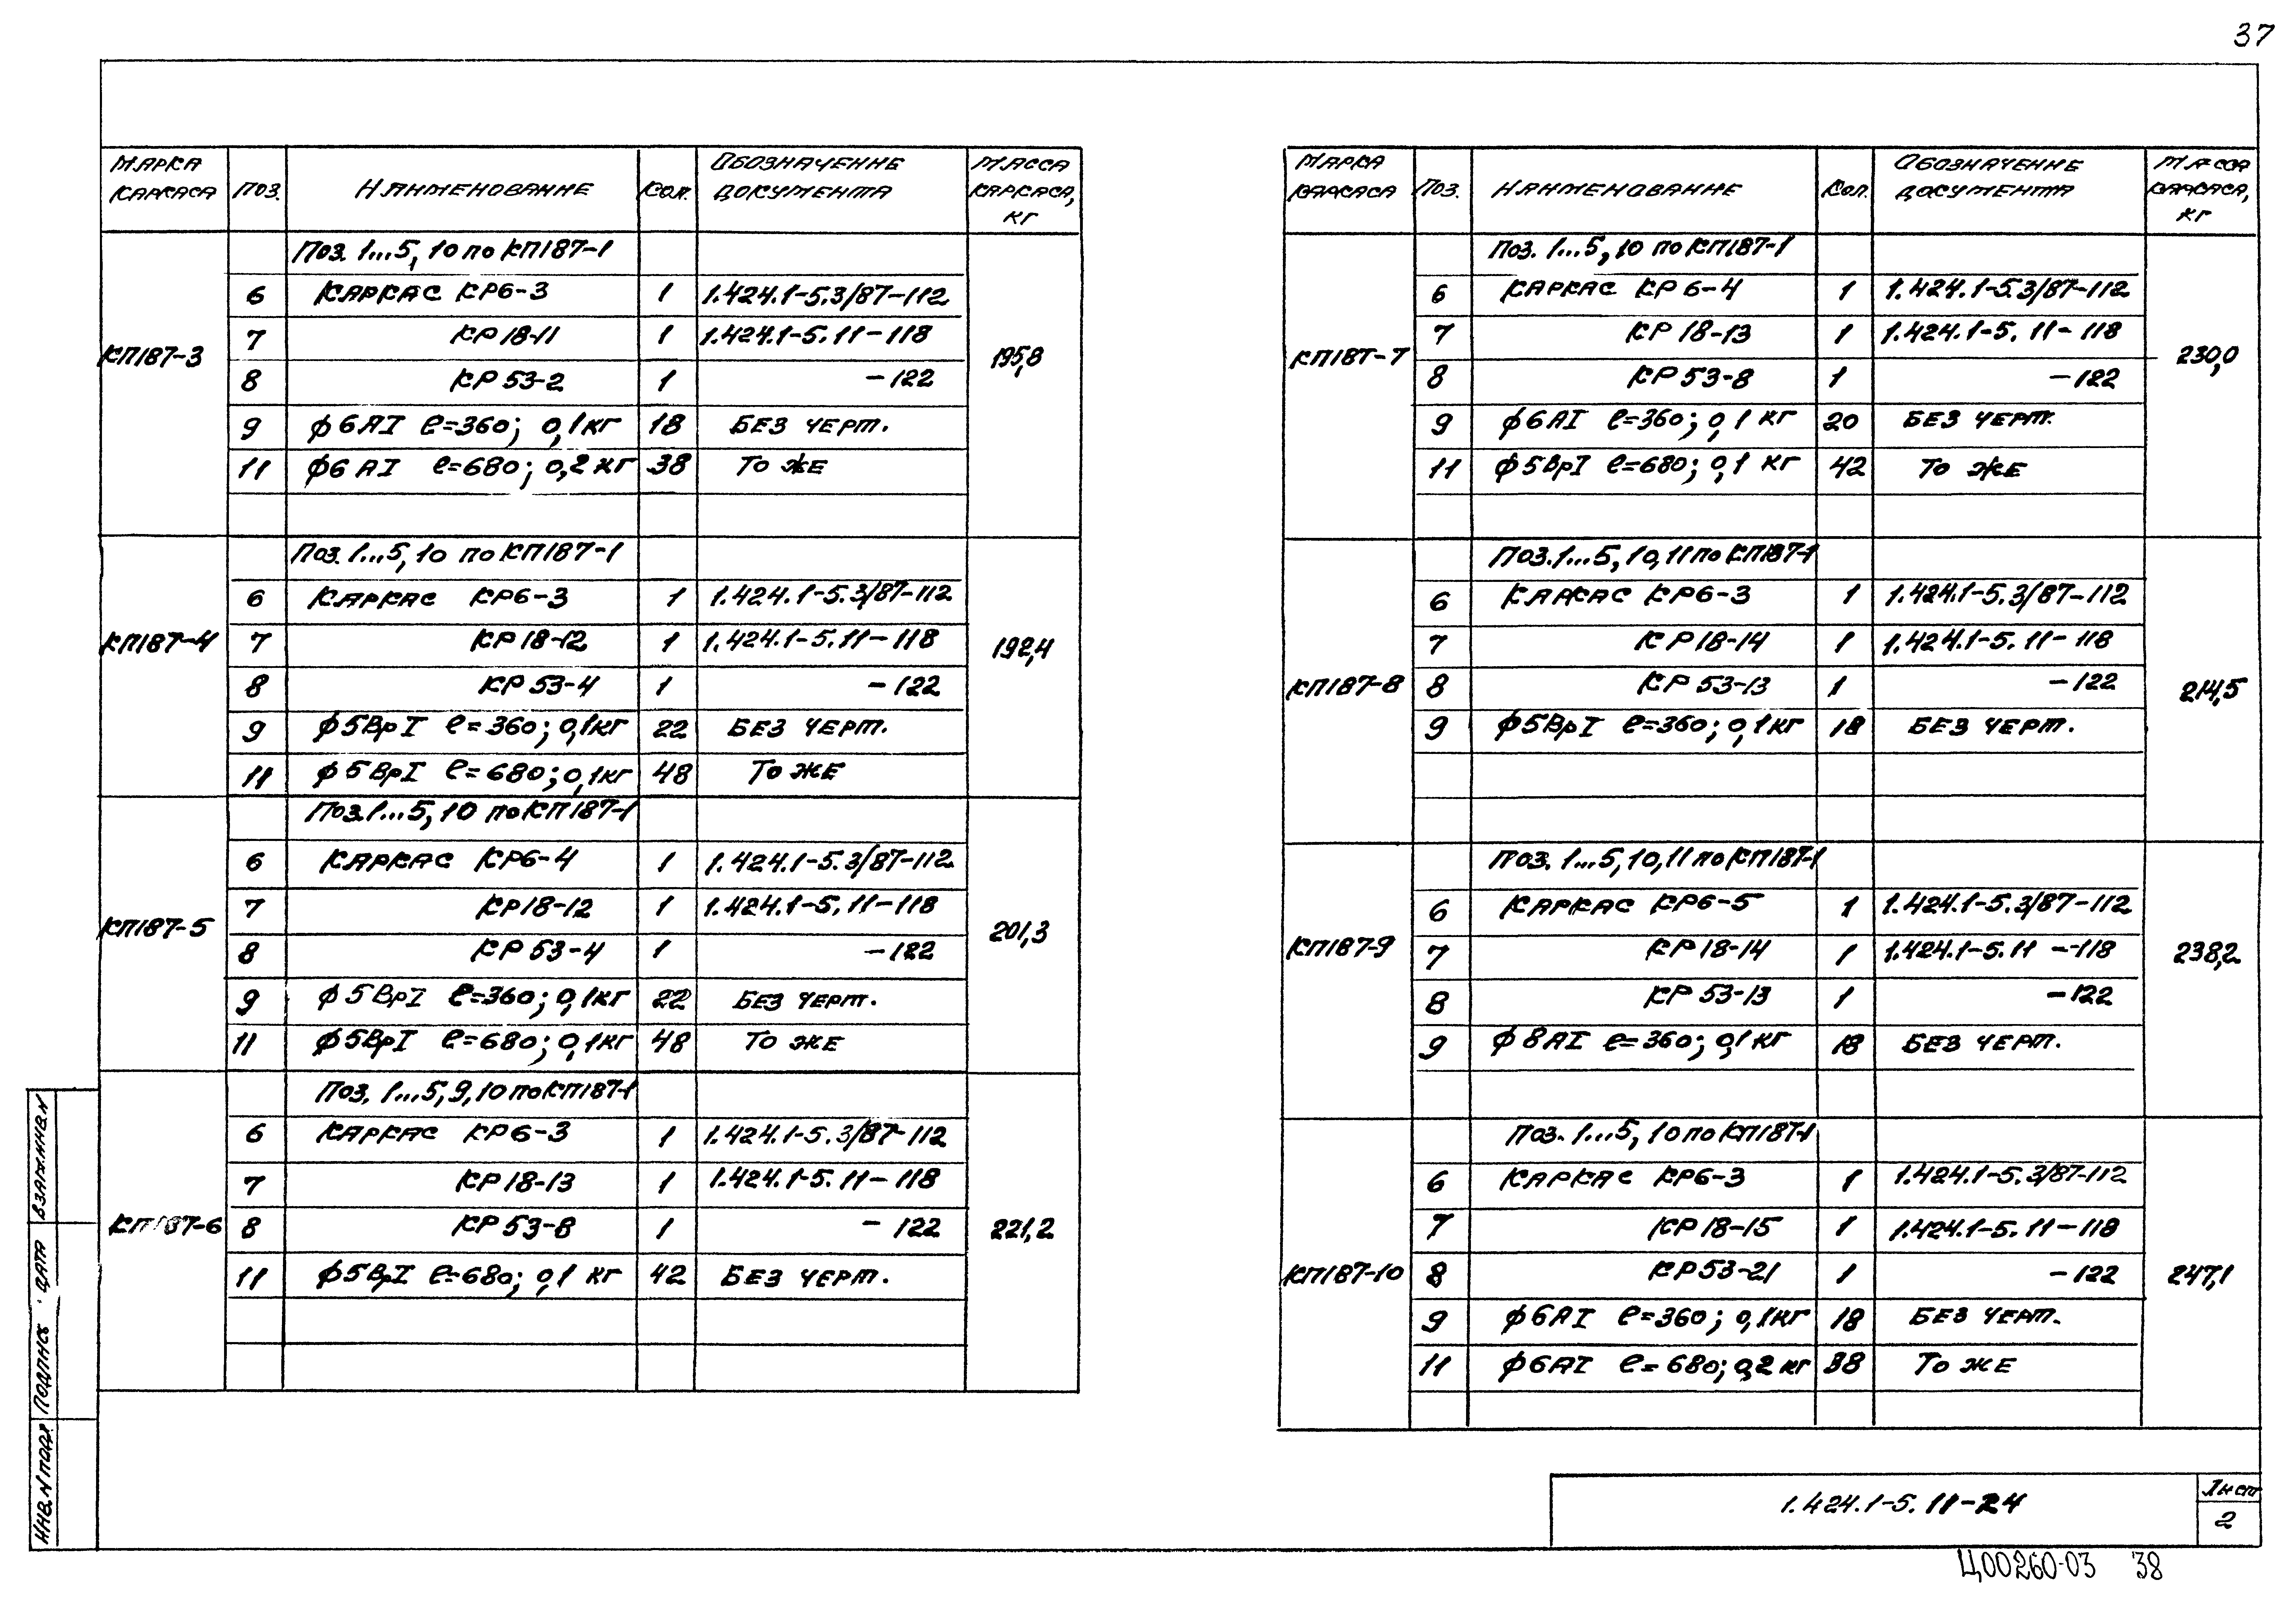 37
МАРКА КАРКАСА ПОЗ. НАИМЕНОВАНИЕ КОЛ. ОБОЗНАЧЕНИЕ ДОКУМЕНТА МАССА КАРКАСА, КГ
КП187-3 195,8
Поз. 1...5, 10 по КП187-1
6 КАРКАС КР6-3 1 1.424.1-5.3/87-112
7 КР18-11 1 1.424.1-5.11-118
8 КР53-2 1 -122
9 ф6АI ℓ=360; 0,1кг 18 БЕЗ ЧЕРТ.
11 ф6АI ℓ=680; 0,2кг 38 ТО ЖЕ
КП187-4 192,4
Поз. 1...5, 10 по КП187-1
6 КАРКАС КР6-3 1 1.424.1-5.3/87-112
7 КР18-12 1 1.424.1-5.11-118
8 КР53-4 1 -122
9 ф5ВрI ℓ=360; 0,1кг 22 БЕЗ ЧЕРТ.
11 ф5ВрI ℓ=680; 0,1кг 48 ТО ЖЕ
КП187-5 201,3
Поз. 1...5, 10 по КП187-1
6 КАРКАС КР6-4 1 1.424.1-5.3/87-112
7 КР18-12 1 1.424.1-5.11-118
8 КР53-4 1 -122
9 ф5ВрI ℓ=360; 0,1кг 22 БЕЗ ЧЕРТ.
11 ф5ВрI ℓ=680; 0,1кг 48 ТО ЖЕ
КП187-6 221,2
Поз. 1...5, 9, 10 по КП187-1
6 КАРКАС КР6-3 1 1.424.1-5.3/87-112
7 КР18-13 1 1.424.1-5.11-118
8 КР53-8 1 -122
11 ф5ВрI ℓ=680; 0,1 кг 42 БЕЗ ЧЕРТ.
МАРКА КАРКАСА ПОЗ. НАИМЕНОВАНИЕ КОЛ. ОБОЗНАЧЕНИЕ ДОКУМЕНТА МАССА КАРКАСА, КГ
КП187-7 230,0
Поз. 1...5, 10 по КП187-1
6 КАРКАС КР6-4 1 1.424.1-5.3/87-112
7 КР18-13 1 1.424.1-5.11-118
8 КР53-8 1 -122
9 ф6АI ℓ=360; 0,1 кг 20 БЕЗ ЧЕРТ.
11 ф5ВрI ℓ=680; 0,1 кг 42 ТО ЖЕ
КП187-8 214,5
Поз. 1...5, 10, 11 по КП187-1
6 КАРКАС КР6-3 1 1.424.1-5.3/87-112
7 КР18-14 1 1.424.1-5.11-118
8 КР53-13 1 -122
9 ф5ВрI ℓ=360; 0,1кг 18 БЕЗ ЧЕРТ.
КП187-9 238,2
Поз. 1...5, 10, 11 по КП187-1
6 КАРКАС КР6-5 1 1.424.1-5.3/87-112
7 КР18-14 1 1.424.1-5.11-118
8 КР53-13 1 -122
9 ф8АI ℓ=360; 0,1кг 18 БЕЗ ЧЕРТ.
КП187-10 247,1
Поз. 1...5, 10 по КП187-1
6 КАРКАС КР6-3 1 1.424.1-5.3/87-112
7 КР18-15 1 1.424.1-5.11-118
8 КР53-21 1 -122
9 ф6АI ℓ=360; 0,1кг 18 БЕЗ ЧЕРТ.
11 ф6АI ℓ=680; 0,2 кг 38 ТО ЖЕ
ИНВ. N ПОДЛ. ПОДПИСЬ ДАТА ВЗАМ.ИНВ.N
1.424.1-5.11-24
Лист
2
Ц00260-03 38